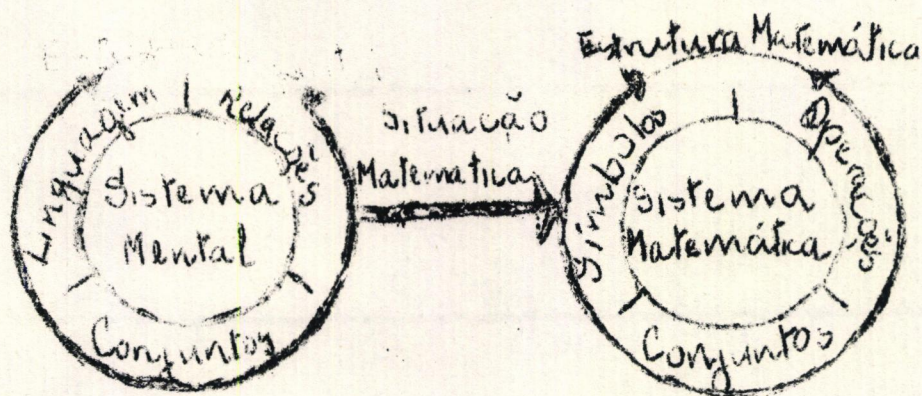 Linguagem
Relações
Sistema
Mental
Conjuntos
Situação
Matemática
Estrutura Matemática
Símbolos
Operações
Sistema
Matemática
Conjuntos